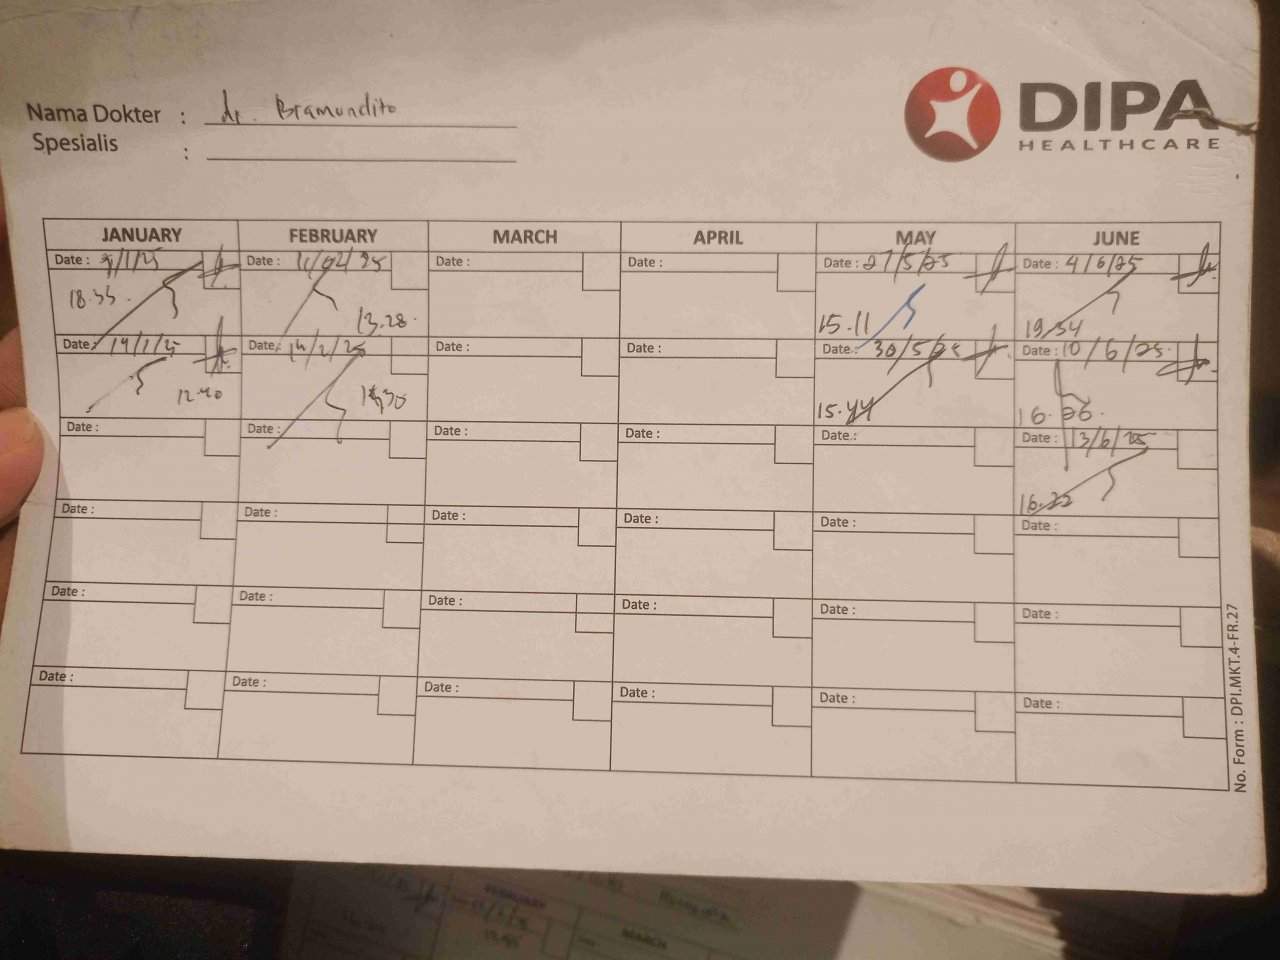 Nama Dokter : dr. Bramundito
Spesialis :
DIPA
HEALTHCARE
JANUARY FEBRUARY MARCH APRIL MAY JUNE
Date : 9/1/25 Date : 11/02/25 Date : Date : Date : 27/5/25 Date : 4/6/25
18.55 13.28 15.11 19.34
Date : 14/1/25 Date : 14/2/25 Date : Date : Date : 30/5/25 Date : 10/6/25
12.40 15.44 16.
Date : Date : Date : Date : Date : Date : 13/6/25
16.22
Date : Date : Date : Date : Date : Date :
Date : Date : Date : Date : Date : Date :
Date : Date : Date : Date : Date : Date :
No. Form : DPI.MKT.4-FR.27
FEBRUARY
MARCH